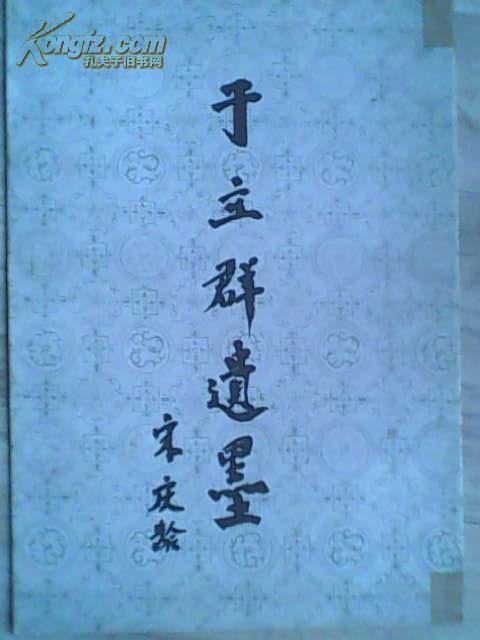 Kongfz.com
孔夫子旧书网
于立群遗墨
宋庆龄